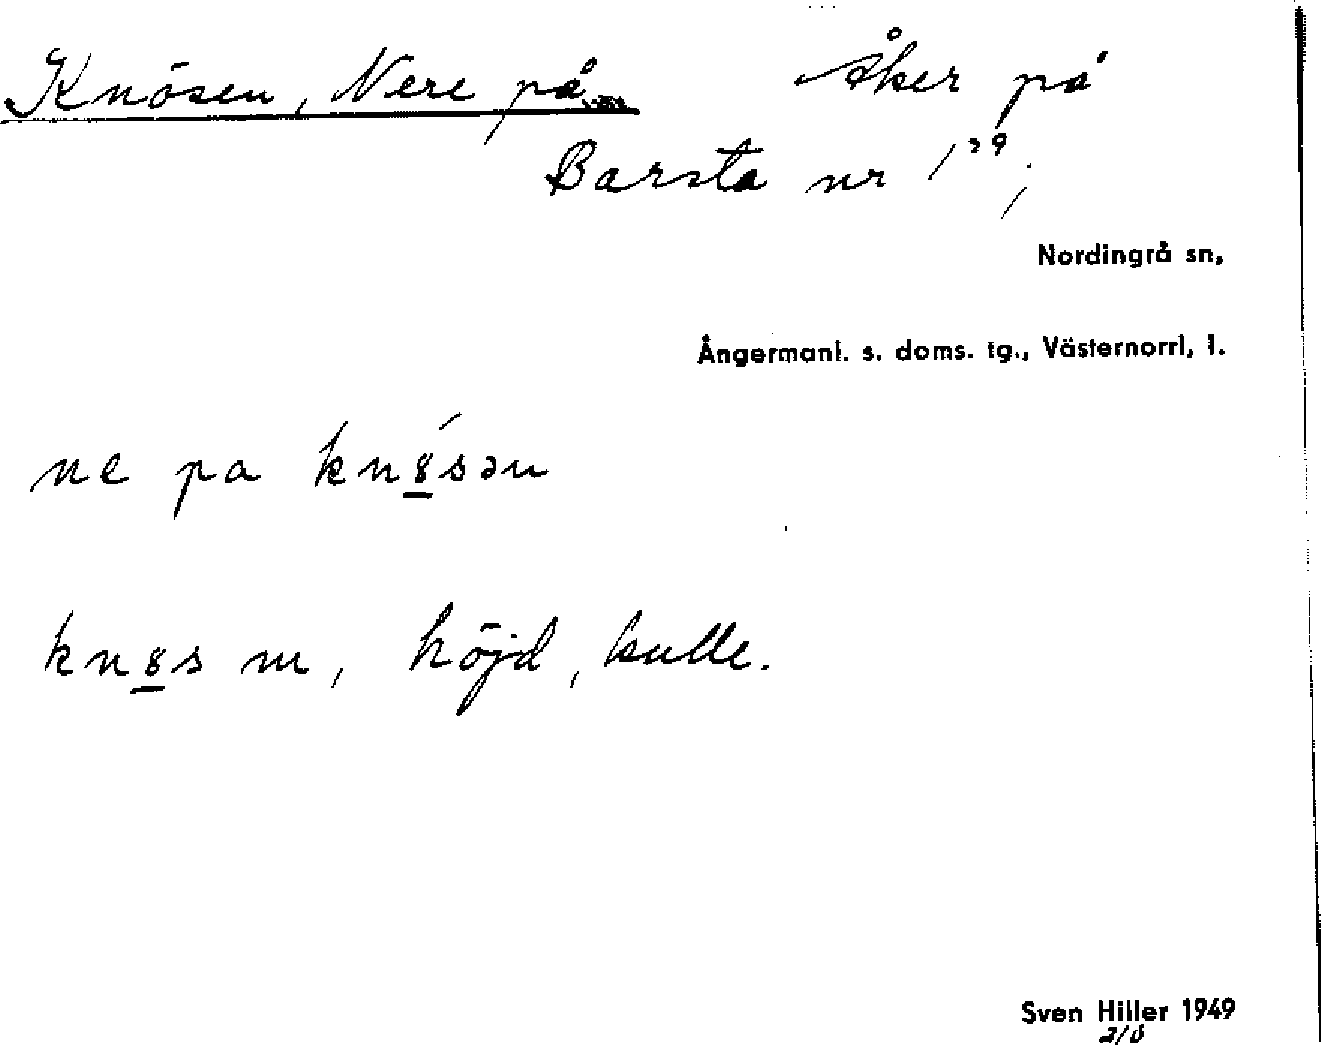 Knösen, Nere på Åker på
Barsta nr 1²⁹;
Nordingrå sn,
Ångermanl. s. doms. tg., Västernorrl, l.
ne pa kn8́sən
kn8s m, höjd, kulle.
Sven Hiller 1949